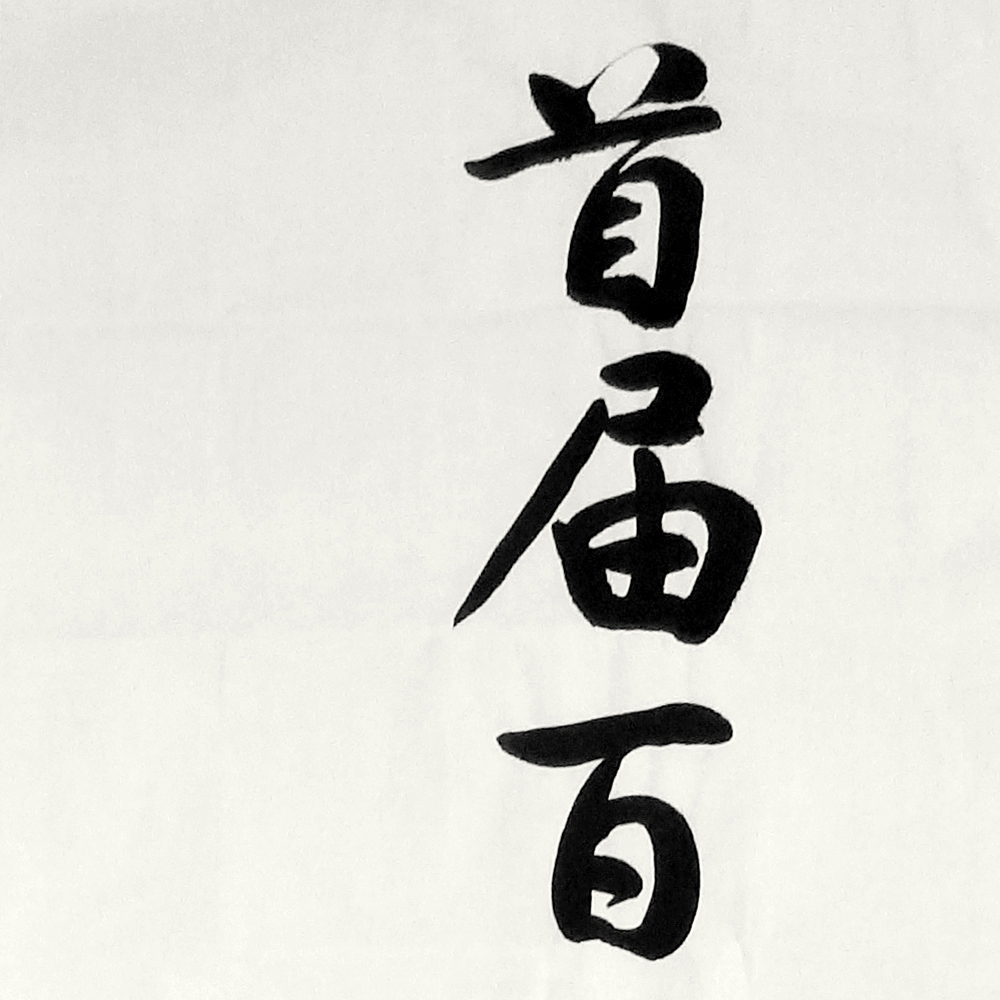 首届百